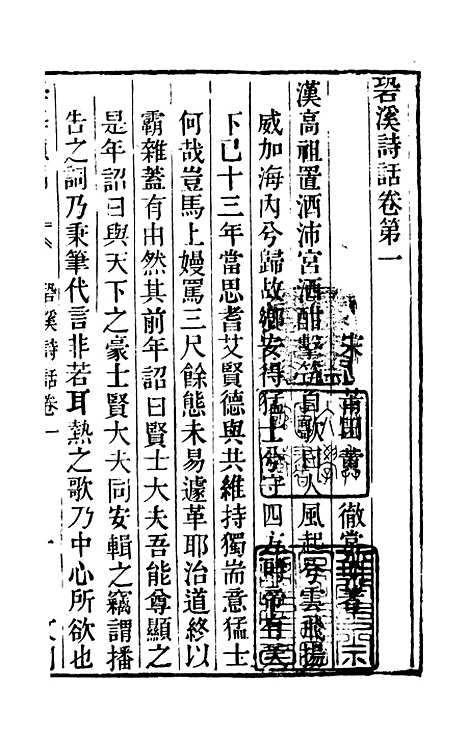 䂬溪詩話卷第一
宋 莆田黃 徹常明 著
漢高祖置酒沛宮酒酣擊筑自歌曰大風起兮雲飛揚
威加海內兮歸故鄉安得猛士兮守四方時帝有天
下已十三年當思耆艾賢德與共維持獨耑意猛士
何哉豈馬上嫚罵三尺餘態未易遽革耶治道終以
霸雜蓋有由然其前年詔曰賢士大夫吾能尊顯之
是年詔曰與天下之豪士賢大夫同安輯之竊謂播
告之詞乃秉筆代言非若耳熱之歌乃中心所欲也
䂬溪詩話卷一
一